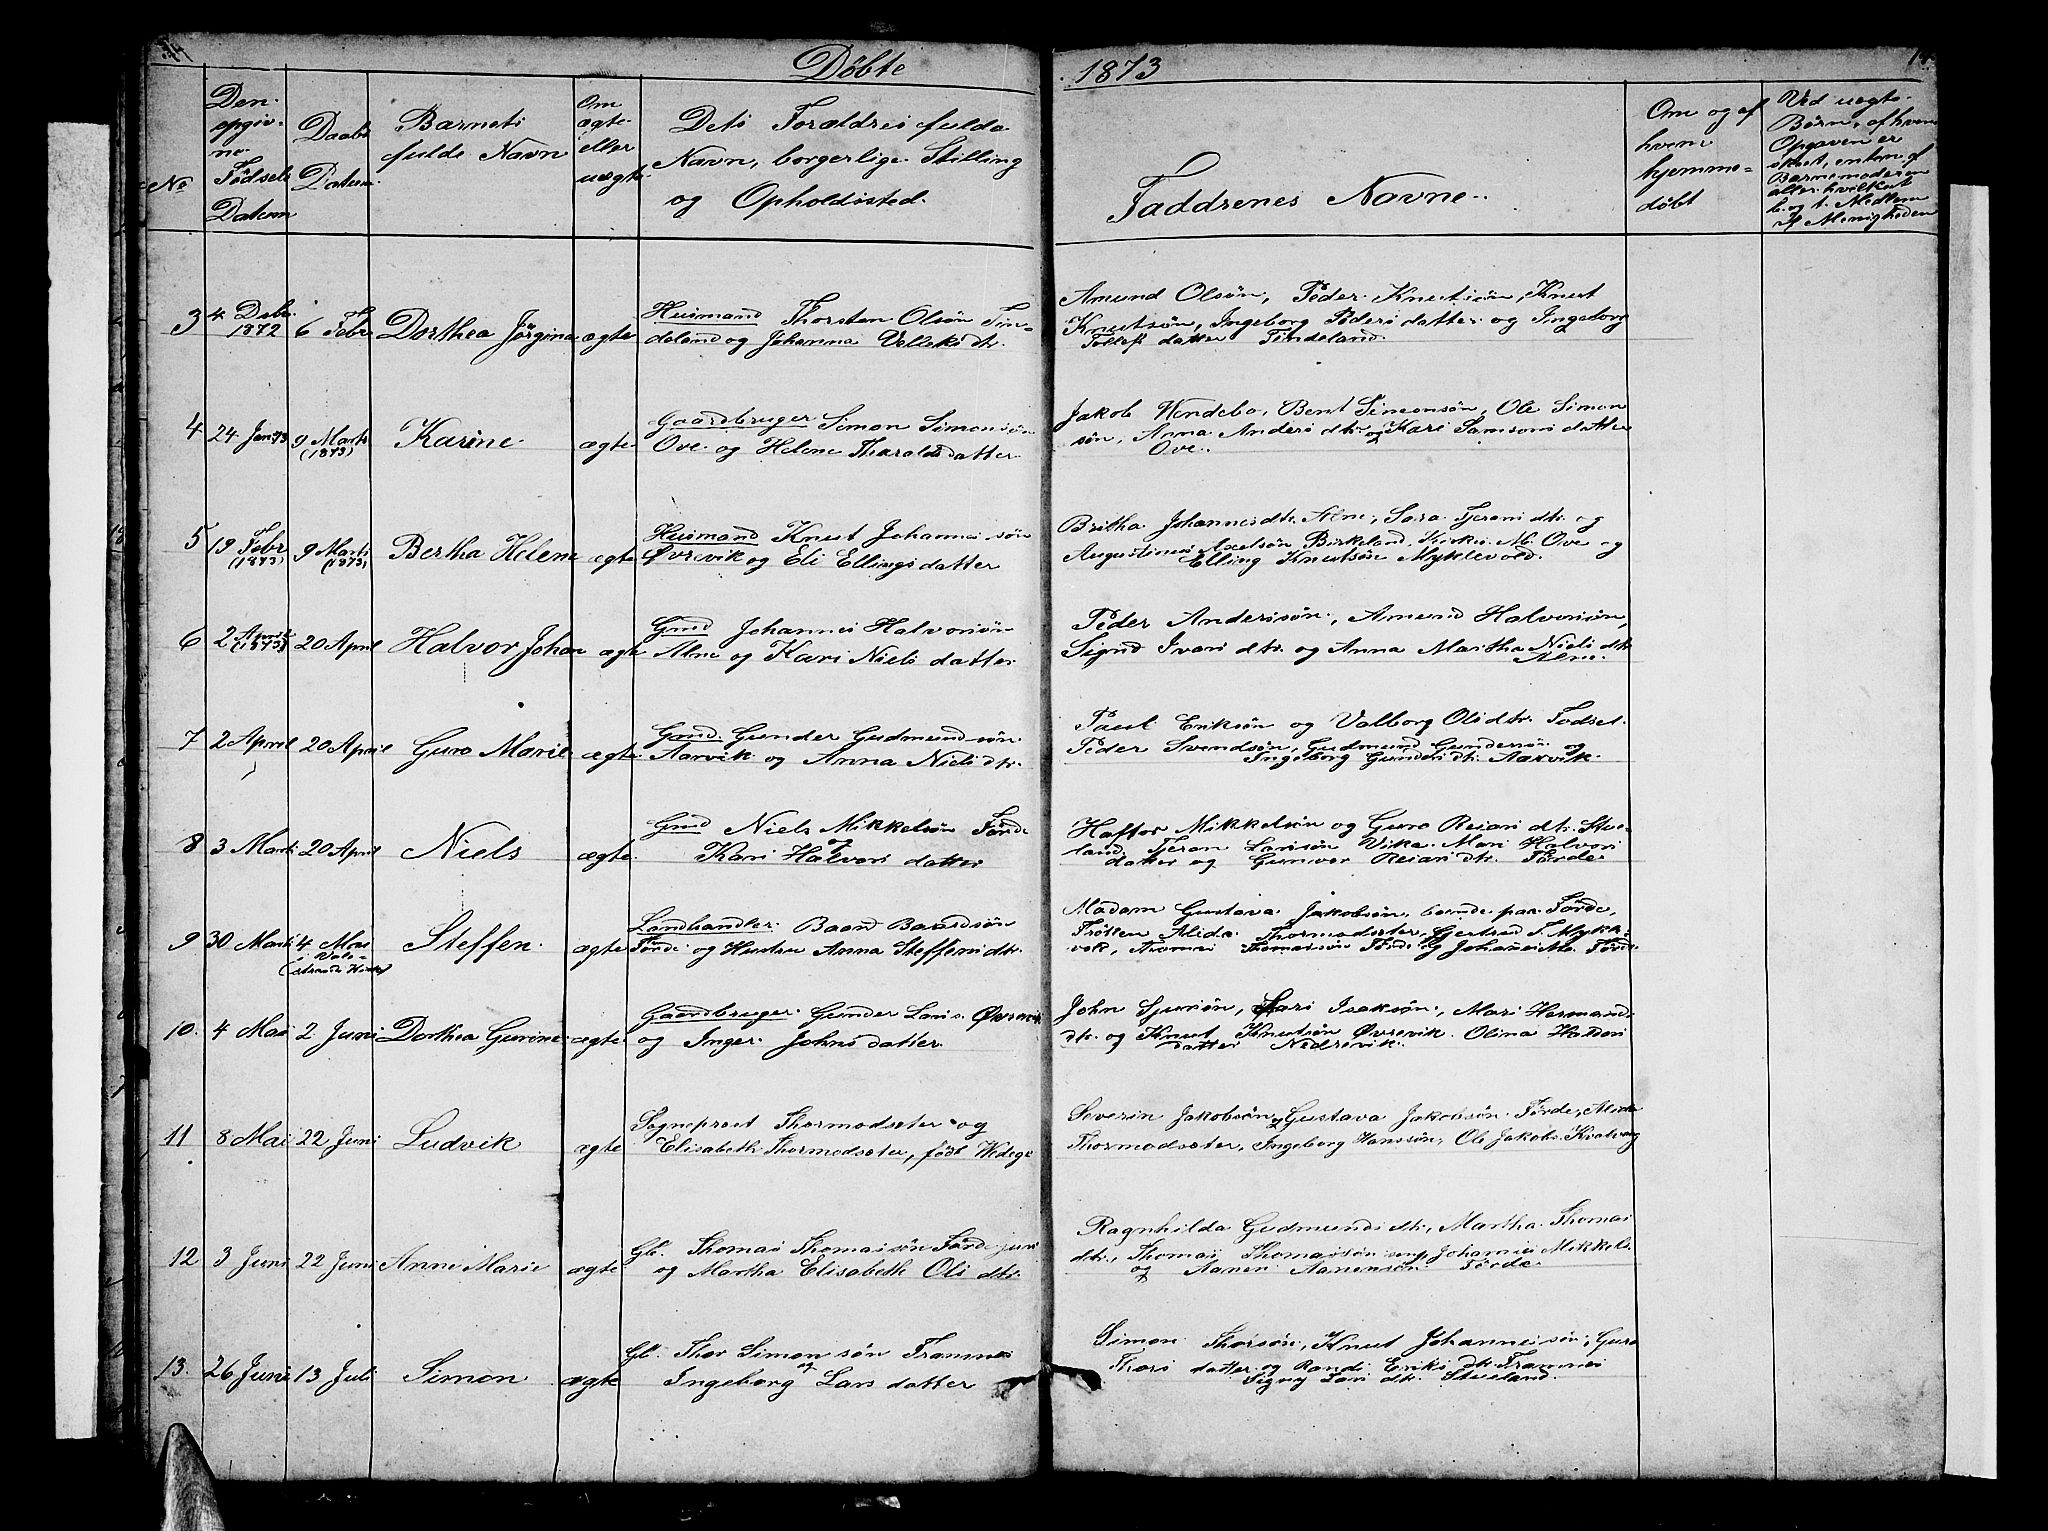 Döbte
1873
No
Den
opgiv-
ne
Födsels
Datum
Daabs
Datum
Barnets
fulde Navn
Om
ægte
eller
uægte
Dets Forældres fulde
Navn, borgerlige Stilling
og Opholdssted.
Faddrenes Navne.
Om og af
hvem
hjemme=
døbt
Ved uægte
Børn, af hvem
Opgaven er
skeet, enten af
Barnemoderen
eller hvilket
b. og t. Medlem
af Menigheden
3
4 Debr.
1872
6 Febr
Dorthea Jørgine
ægte
Husmand Thorsten Olsøn Tin-
deland og Johanna Vellesdtr.
Amund Olsøn, Peder Knutsøn, Knut
Knutsøn, Ingeborg Pedersdatter og Ingeborg
Tollefsdatter Tindeland.
4
24 Jan 73
9 Marts
(1873)
Karine
ægte
Gaardbruger Simon Simonsøn
Ove og Helene Tharaldsdatter
Jakob Vendebo, Bent Simonsøn, Ole Simon
søn, Anna Andersdtr. og Kari Samsons datter
Ove.
5
19 Febr
(1873)
9 Marts
(1873)
Bertha Helene
ægte
Husmand Knut Johannessøn
Øvrevik og Eli Ellingsdatter
Britha Johannesdtr. Alne, Sara Tjerans dtr. og
Augustinus Axelsøn Birkeland. Kirks. M. Ove og
Elling Knutsøn Myklevold.
6
2 April
(1873)
20 April
Halvor Johan
ægte
Gmd Johannes Halvorsøn
Alne og Kari Nielsdatter
Peder Anderssøn, Amund Halvorsøn,
Signd Ivarsdtr. og Anna Martha Nielsdtr.
Alne.
7
2 April
20 April
Guro Marie
ægte
Gmd. Gunder Gudmundsøn
Aarvik og Anna Nielsdtr.
Paul Eriksøn og Valborg Olsdtr. Fodsel.
Peder Svendsøn, Gudmund Gundersøn og
Ingeborg Gundersdtr. Aarvik.
8
3 Marts
20 April
Niels
ægte
Gmd Niels Mikkelsøn Førde
og
Kari Halvorsdatter
Haftor Mikkelsøn og Guro Reiarsdtr. Stue-
land, Tjeran Larssøn Vika. Mari Halvors
datter og Gunvor Reiarsdtr. Førde
9
30 Marts
4 Mai
i Vale-
(strands Kirke)
Steffen
ægte
Landhandler Baard Baardsøn
Førde og Hustru Anna Steffensdtr.
Madam Gustava Jakobsøn, boende paa Førde,
Frøken Alida Thormodsæter, Gjertrud S. Mykk-
vik, Thomas Thomassøn Førde og Johannes M. Førde
10.
4 Mai
2 Juni
Dorthea Gurine
ægte
Gaardbruger Gunder Lars. Øvrevik
og Inger Johnsdatter
John Sjursøn, Lars Isaksøn, Mari Hermands
dtr. og Knut Knutsøn Øvrevik. Olina Haldors
datter Nedrevik.
11
8 Mai
22 Juni
Ludvik
ægte
Sogneprest Thormodsæter og
Elisabeth Thormodsæter, født Wedege
Severin Jakobsøn, Gustava Jakobsøn Førde, Alida
Thormodsæter, Ingeborg Hanssøn, Ole Jakobs. Kvalvaag
12
3 Juni
22 Juni
Anne Marie
ægte
Gb. Thomas Thomassøn Førde jun
og Martha Elisabeth Olsdtr.
Ragnhilda Gudmundsdtr., Martha Thomas
dtr., Thomas Thomassøn, Johannes Mikkels.
og Aanen Aanensøn Førde
13.
26 Juni
13 Juli
Simon
ægte
Gb. Thor Simonsøn Framnes
og
Ingeborg Larsdatter
Simon Thorsøn, Knut Johannessøn, Guro
Thorsdatter og Randi Eriksdtr. Framnes
Signy Larsdtr. Stueland.